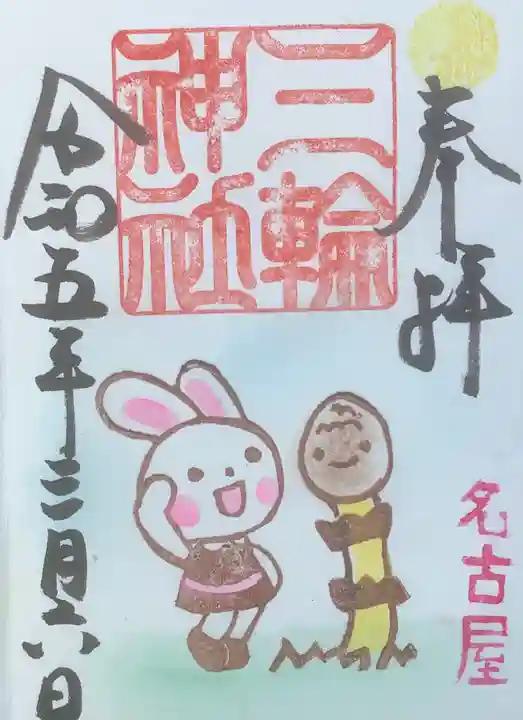 奉拝
三輪
神社
令和五年三月六日
名古屋